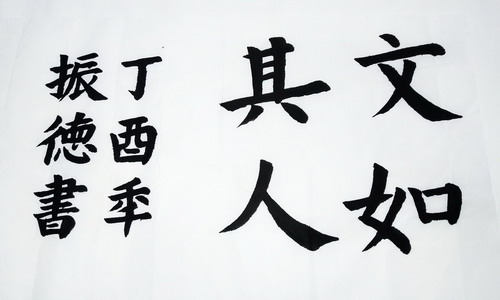 文如
其人
丁酉年
振德書